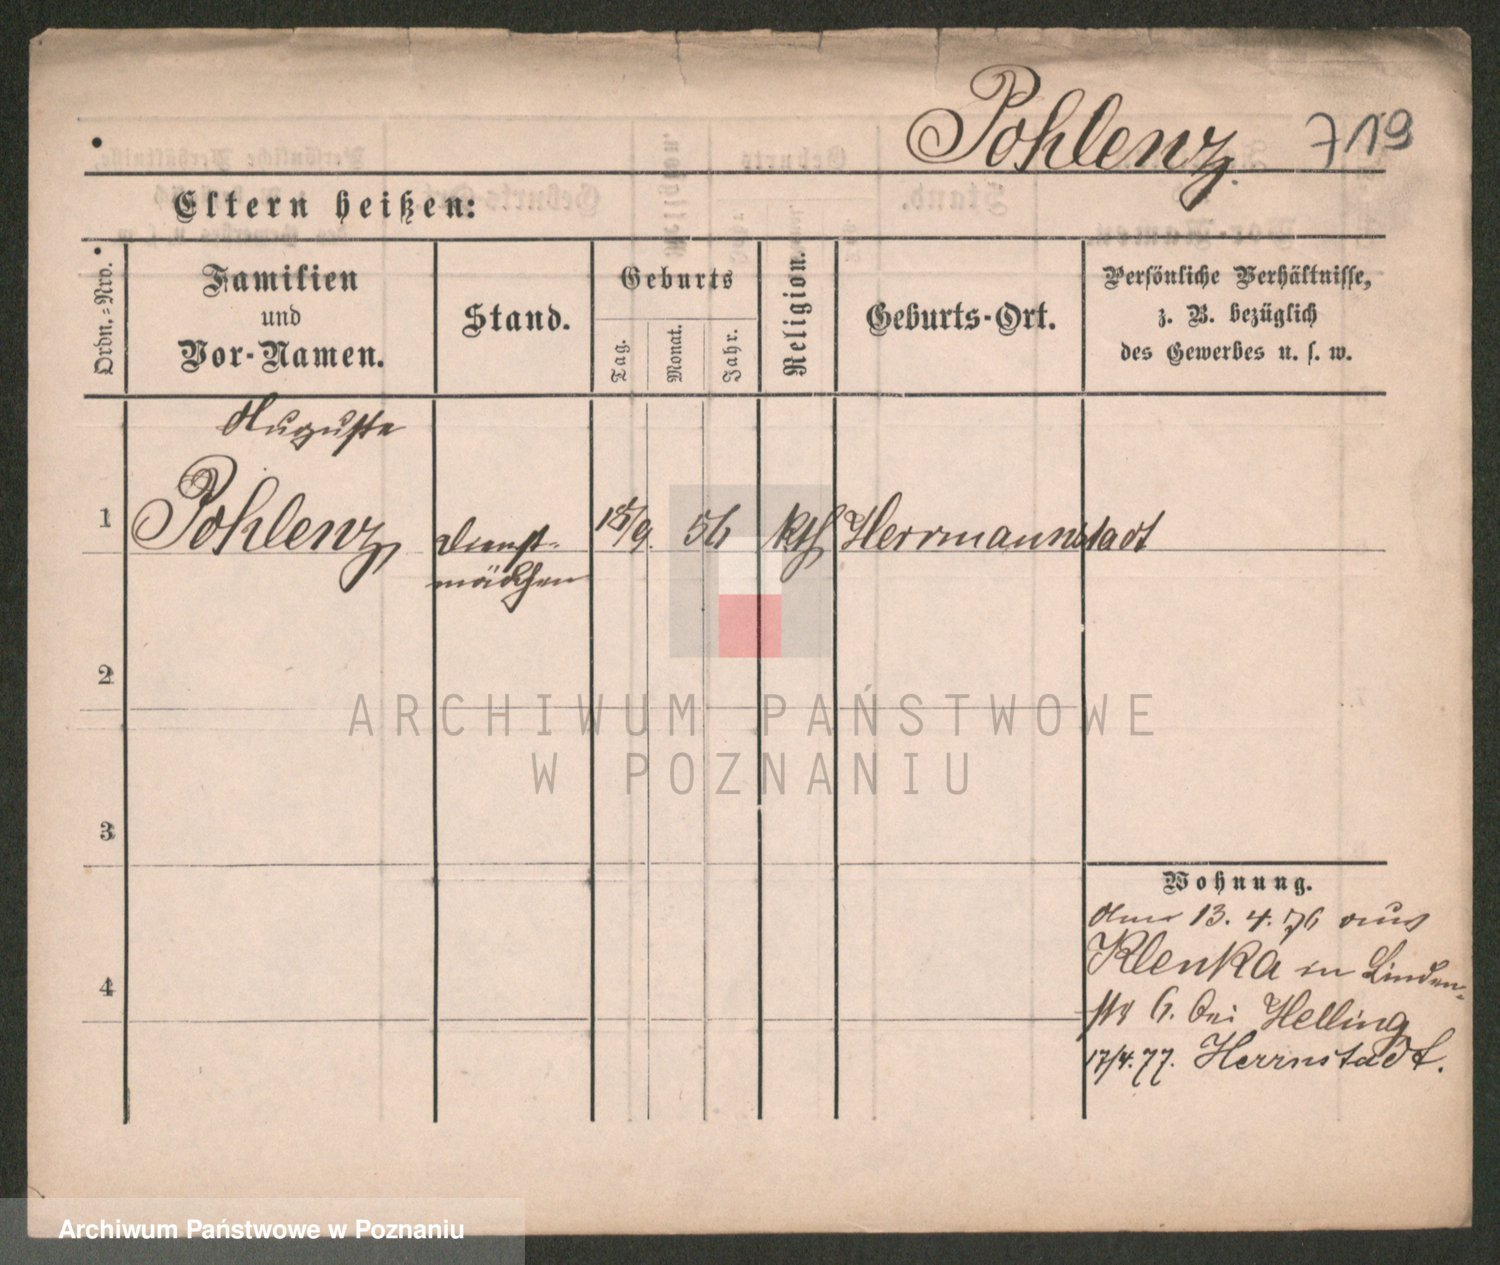 Pohlenz. 719
Eltern heißen:
Ordn.=Nro.
Familien
und
Vor-Namen.
Stand.
Geburts
Tag.
Monat.
Jahr.
Religion.
Geburts-Ort.
Persönliche Verhältnisse,
z. B. bezüglich
des Gewerbes u. s. w.
Auguste
1 Pohlenz, Dienst- 56 kth Herrmannstadt
mädchen
2
ARCHIWUM PAŃSTWOWE
W POZNANIU
3
Wohnung.
13. 4. 76 aus
4
Klenka in Linden-
str 6. bei Helling
17/4. 77. Herrnstadt.
Archiwum Państwowe w Poznaniu